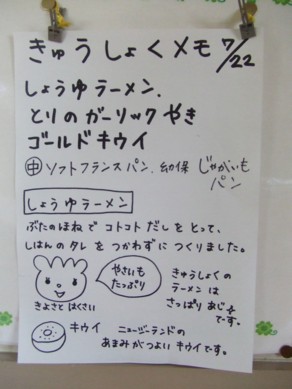 きゅうしょくメモ 7/22
しょうゆラーメン.
とりのガーリックやき
ゴールドキウイ
中 ソフトフランスパン. 幼保 じゃがいも
パン
しょうゆラーメン
ぶたのほねで コトコト だしを とって、
しはんの タレ を つかわずに つくりました。
やさいも
たっぷり
きゅうしょくの
ラーメン は
さっぱり あじ
です。
きよさと はくさい
キウイ
ニュージーランドの
あまみがつよい キウイです。